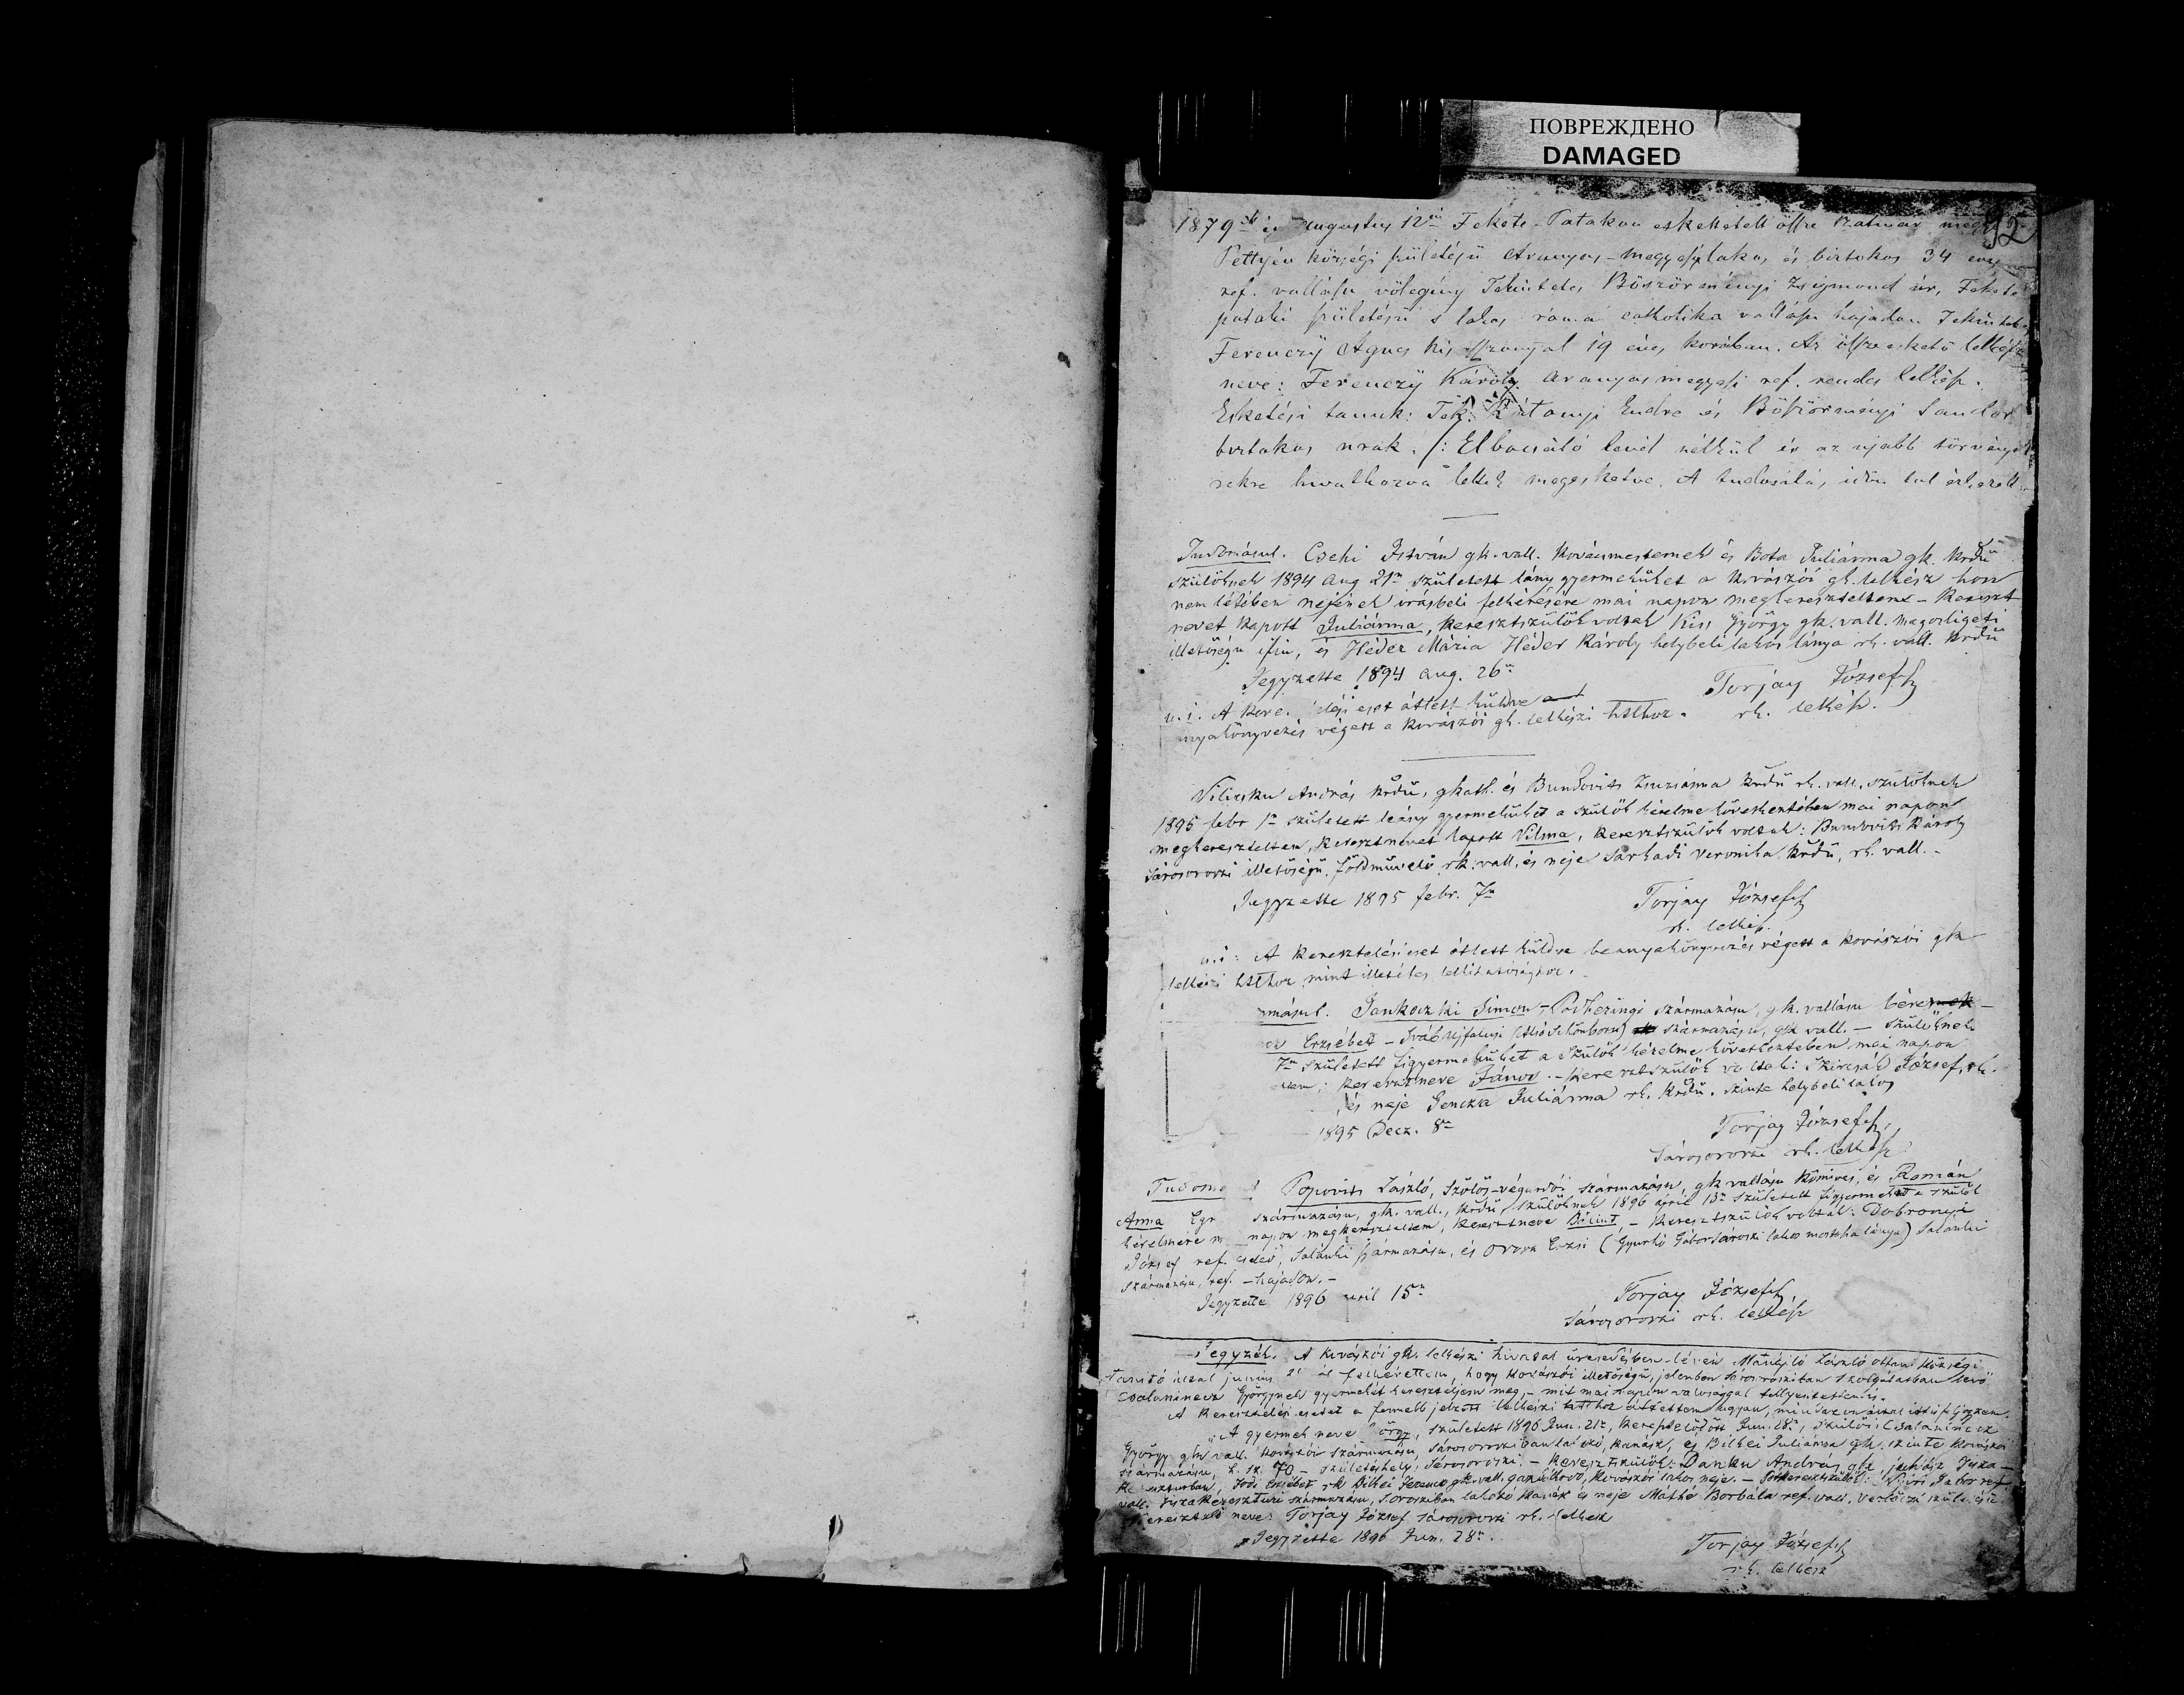 ПОВРЕЖДЕНО
DAMAGED
92
1879 augustus 12én Fekete-Patakon eskettetett össze Szatmár
Pettyén községi születésü Aranyos-megyesi lakos és birtokos 34 éves
ref. vallásu vőlegény Tekintetes Böszörményi Zsigmond úr, Fekete
pataki születésü s lakos róma catholika vallásu hajadon
Ferenczÿ Ágnes kis asszonyal 19 éves korában. Az összeeskető lelkész
neve: Ferenczÿ Károly aranyosmegyesi ref. rendes lelkész.
Esketési tanuk: Tek. Endre és Böszörményi Sandor
birtokos urak. /: Elbocsátó levél nélkül és az ujabb törvény
rekre hivatkozva lettek megesketve. A tudositás
Tudomásul. Csehi István gk. vall. kovácsmesternek és Bota Juliánna gk. krdü
szülöknek 1894 aug 21n született lány gyermeküket a kovászói gk. lelkész hon
nem létében nejének irásbeli felkérésére mai napon megkereszteltem - Kereszt
nevet kapott Juliánna, keresztszülők voltak Kiss György gk. vall. magosligeti
illetőségü ifiu, és Héder Mária Héder Károly helybeli lakos lánya rk. vall. krdü
Jegyzette 1894 aug. 26n
Torjay József
u.i. A eset áttett küldve
rk. lelkész.
anyakönyvezés végett a kovászói gk. lelkészi hathoz.
András krdü, gkath. és Bundovits Zsuzsánna krdü rk. vall. szülöknek
1895 febr 1n született leány gyermeküket a szülök kérelme következtében mai napon
megkereszteltem, keresztnevet kapott Vilma, keresztszülök voltak: Bundovits Károly
Sárosoroszi illetöségü földmüvelö rk. vall. és neje Sarkadi Veronika krdü, rk. vall. -
Jegyzette 1895 febr. 7n
Torjay József
rk. lelkész.
u.i: A keresztelési eset áttett küldve beanyakönyvezés végett a kovászói gk
lelkészi hathoz mint illetékes
másul. Jankoczki Simon - Podheringi származásu, gk. vallásu béres
Erzsébet - Sváb Ujfalusi (Alsó Schönborn) származásu, gk vall. - szülöknek
7n született figyermeküket a szülök kérelme következtében mai napon
tem; keresztneve János. - Keresztszülök voltak: József, rk.
és neje Gencza Juliánna rk. krdü. szinte helybeli lakos
1895 Decz. 8n
Torjay József,
Sárosoroszi rk. lelkész
Tudomá Popovits László, Szölös-végardói származásu, gk vallásu kömives, és Román
Anna Egr származásu, gk. vall., krdü, szülöknek 1896 april 13n született figyermeket a szülök
kérelmére m napon megkereszteltem, keresztneve Bálint, - Keresztszülök voltak: Dobronyi
József ref. cseléd, Salánki származásu, és Orosz Erzsi (Gyurkó Gábor Sároszi lakos mostoha lánya) Salánki
származásu, ref. - hajadon. -
Jegyzette 1896 april 15n
Torjay József,
Sárosoroszi rk. lelkész
Jegyzék. A kovászói gk. lelkészi hivatal üresedésben lévén László ottani községi
tanitó által junius felkérettem, hogy kovászói illetöségü, jelenben Sárosorosziban szolgálatban levö
Csalaninecz Györgynek gyermekét kereszteljem meg, - mit mai napon valósággal tellyesitettem is.
A keresztelési esetet a fennebb jelzett lelkészi hathoz áttettem ugyan,
A gyermek neve György, született 1896 Jun. 21n, kereszteltetett Jun. 28n, szülöi, Csalaninecz
György gk vall. kovászói származásu, Sárosoroszi lakó, kanász, és Bilkei Juliánna gk. szinte kovászói
származásu, h. sz. 70 - születéshely Sárosoroszi. - Keresztszülök: Danku András gk juhász Tisza-
keresztúrban, Erzsébet rk Bilkei Ferencz gk. vall. kovászói lakos neje. - Gabor ref
vall. Tiszakeresztúri származásu, Soroszban lakozó kanász és neje Máthé Borbála ref. vall. Verbőczi
Keresztelö neve: Torjay József Sárosoroszi rk. lelkész
Jegyzette 1896 Jun. 28n.
Torjay József
rk. lelkész